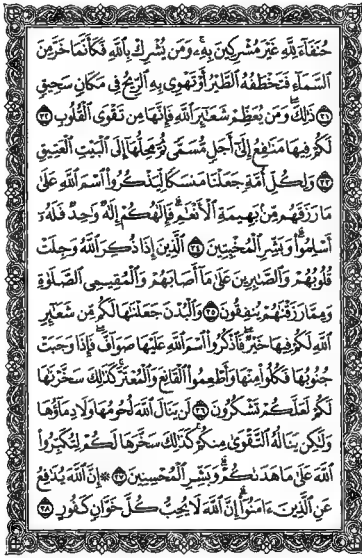 حُنَفَآءَ لِلَّهِ غَيْرَ مُشْرِكِينَ بِهِۦ ۚ وَمَن يُشْرِكْ بِٱللَّهِ فَكَأَنَّمَا خَرَّ مِنَ
ٱلسَّمَآءِ فَتَخْطَفُهُ ٱلطَّيْرُ أَوْ تَهْوِى بِهِ ٱلرِّيحُ فِى مَكَانٍ سَحِيقٍ
٣١ ذَٰلِكَ وَمَن يُعَظِّمْ شَعَٰٓئِرَ ٱللَّهِ فَإِنَّهَا مِن تَقْوَى ٱلْقُلُوبِ ٣٢
لَكُمْ فِيهَا مَنَٰفِعُ إِلَىٰٓ أَجَلٍ مُّسَمًّى ثُمَّ مَحِلُّهَآ إِلَى ٱلْبَيْتِ ٱلْعَتِيقِ
٣٣ وَلِكُلِّ أُمَّةٍ جَعَلْنَا مَنسَكًا لِّيَذْكُرُوا۟ ٱسْمَ ٱللَّهِ عَلَىٰ
مَا رَزَقَهُم مِّنۢ بَهِيمَةِ ٱلْأَنْعَٰمِ ۗ فَإِلَٰهُكُمْ إِلَٰهٌ وَٰحِدٌ فَلَهُۥٓ
أَسْلِمُوا۟ ۗ وَبَشِّرِ ٱلْمُخْبِتِينَ ٣٤ ٱلَّذِينَ إِذَا ذُكِرَ ٱللَّهُ وَجِلَتْ
قُلُوبُهُمْ وَٱلصَّٰبِرِينَ عَلَىٰ مَآ أَصَابَهُمْ وَٱلْمُقِيمِى ٱلصَّلَوٰةِ
وَمِمَّا رَزَقْنَٰهُمْ يُنفِقُونَ ٣٥ وَٱلْبُدْنَ جَعَلْنَٰهَا لَكُم مِّن شَعَٰٓئِرِ
ٱللَّهِ لَكُمْ فِيهَا خَيْرٌ ۖ فَٱذْكُرُوا۟ ٱسْمَ ٱللَّهِ عَلَيْهَا صَوَآفَّ ۖ فَإِذَا وَجَبَتْ
جُنُوبُهَا فَكُلُوا۟ مِنْهَا وَأَطْعِمُوا۟ ٱلْقَانِعَ وَٱلْمُعْتَرَّ ۚ كَذَٰلِكَ سَخَّرْنَٰهَا
لَكُمْ لَعَلَّكُمْ تَشْكُرُونَ ٣٦ لَن يَنَالَ ٱللَّهَ لُحُومُهَا وَلَا دِمَآؤُهَا
وَلَٰكِن يَنَالُهُ ٱلتَّقْوَىٰ مِنكُمْ ۚ كَذَٰلِكَ سَخَّرَهَا لَكُمْ لِتُكَبِّرُوا۟
ٱللَّهَ عَلَىٰ مَا هَدَىٰكُمْ ۗ وَبَشِّرِ ٱلْمُحْسِنِينَ ٣٧ ۞ إِنَّ ٱللَّهَ يُدَٰفِعُ
عَنِ ٱلَّذِينَ ءَامَنُوٓا۟ ۗ إِنَّ ٱللَّهَ لَا يُحِبُّ كُلَّ خَوَّانٍ كَفُورٍ ٣٨